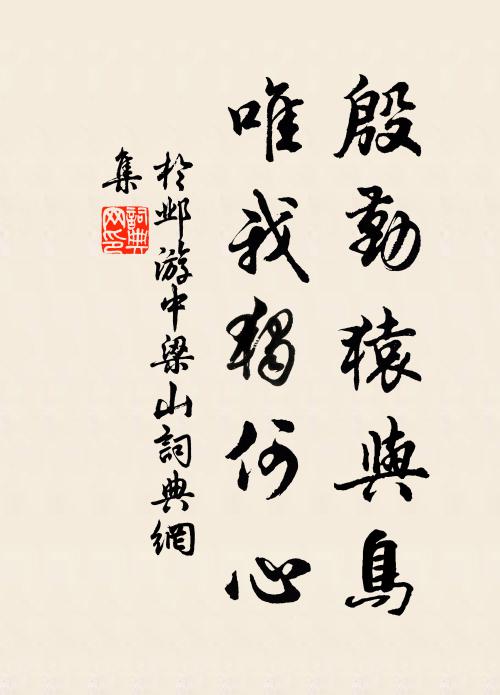 殷勤猿與鳥
唯我獨何心
於邺游中梁山詞典網
集
詞典
网印